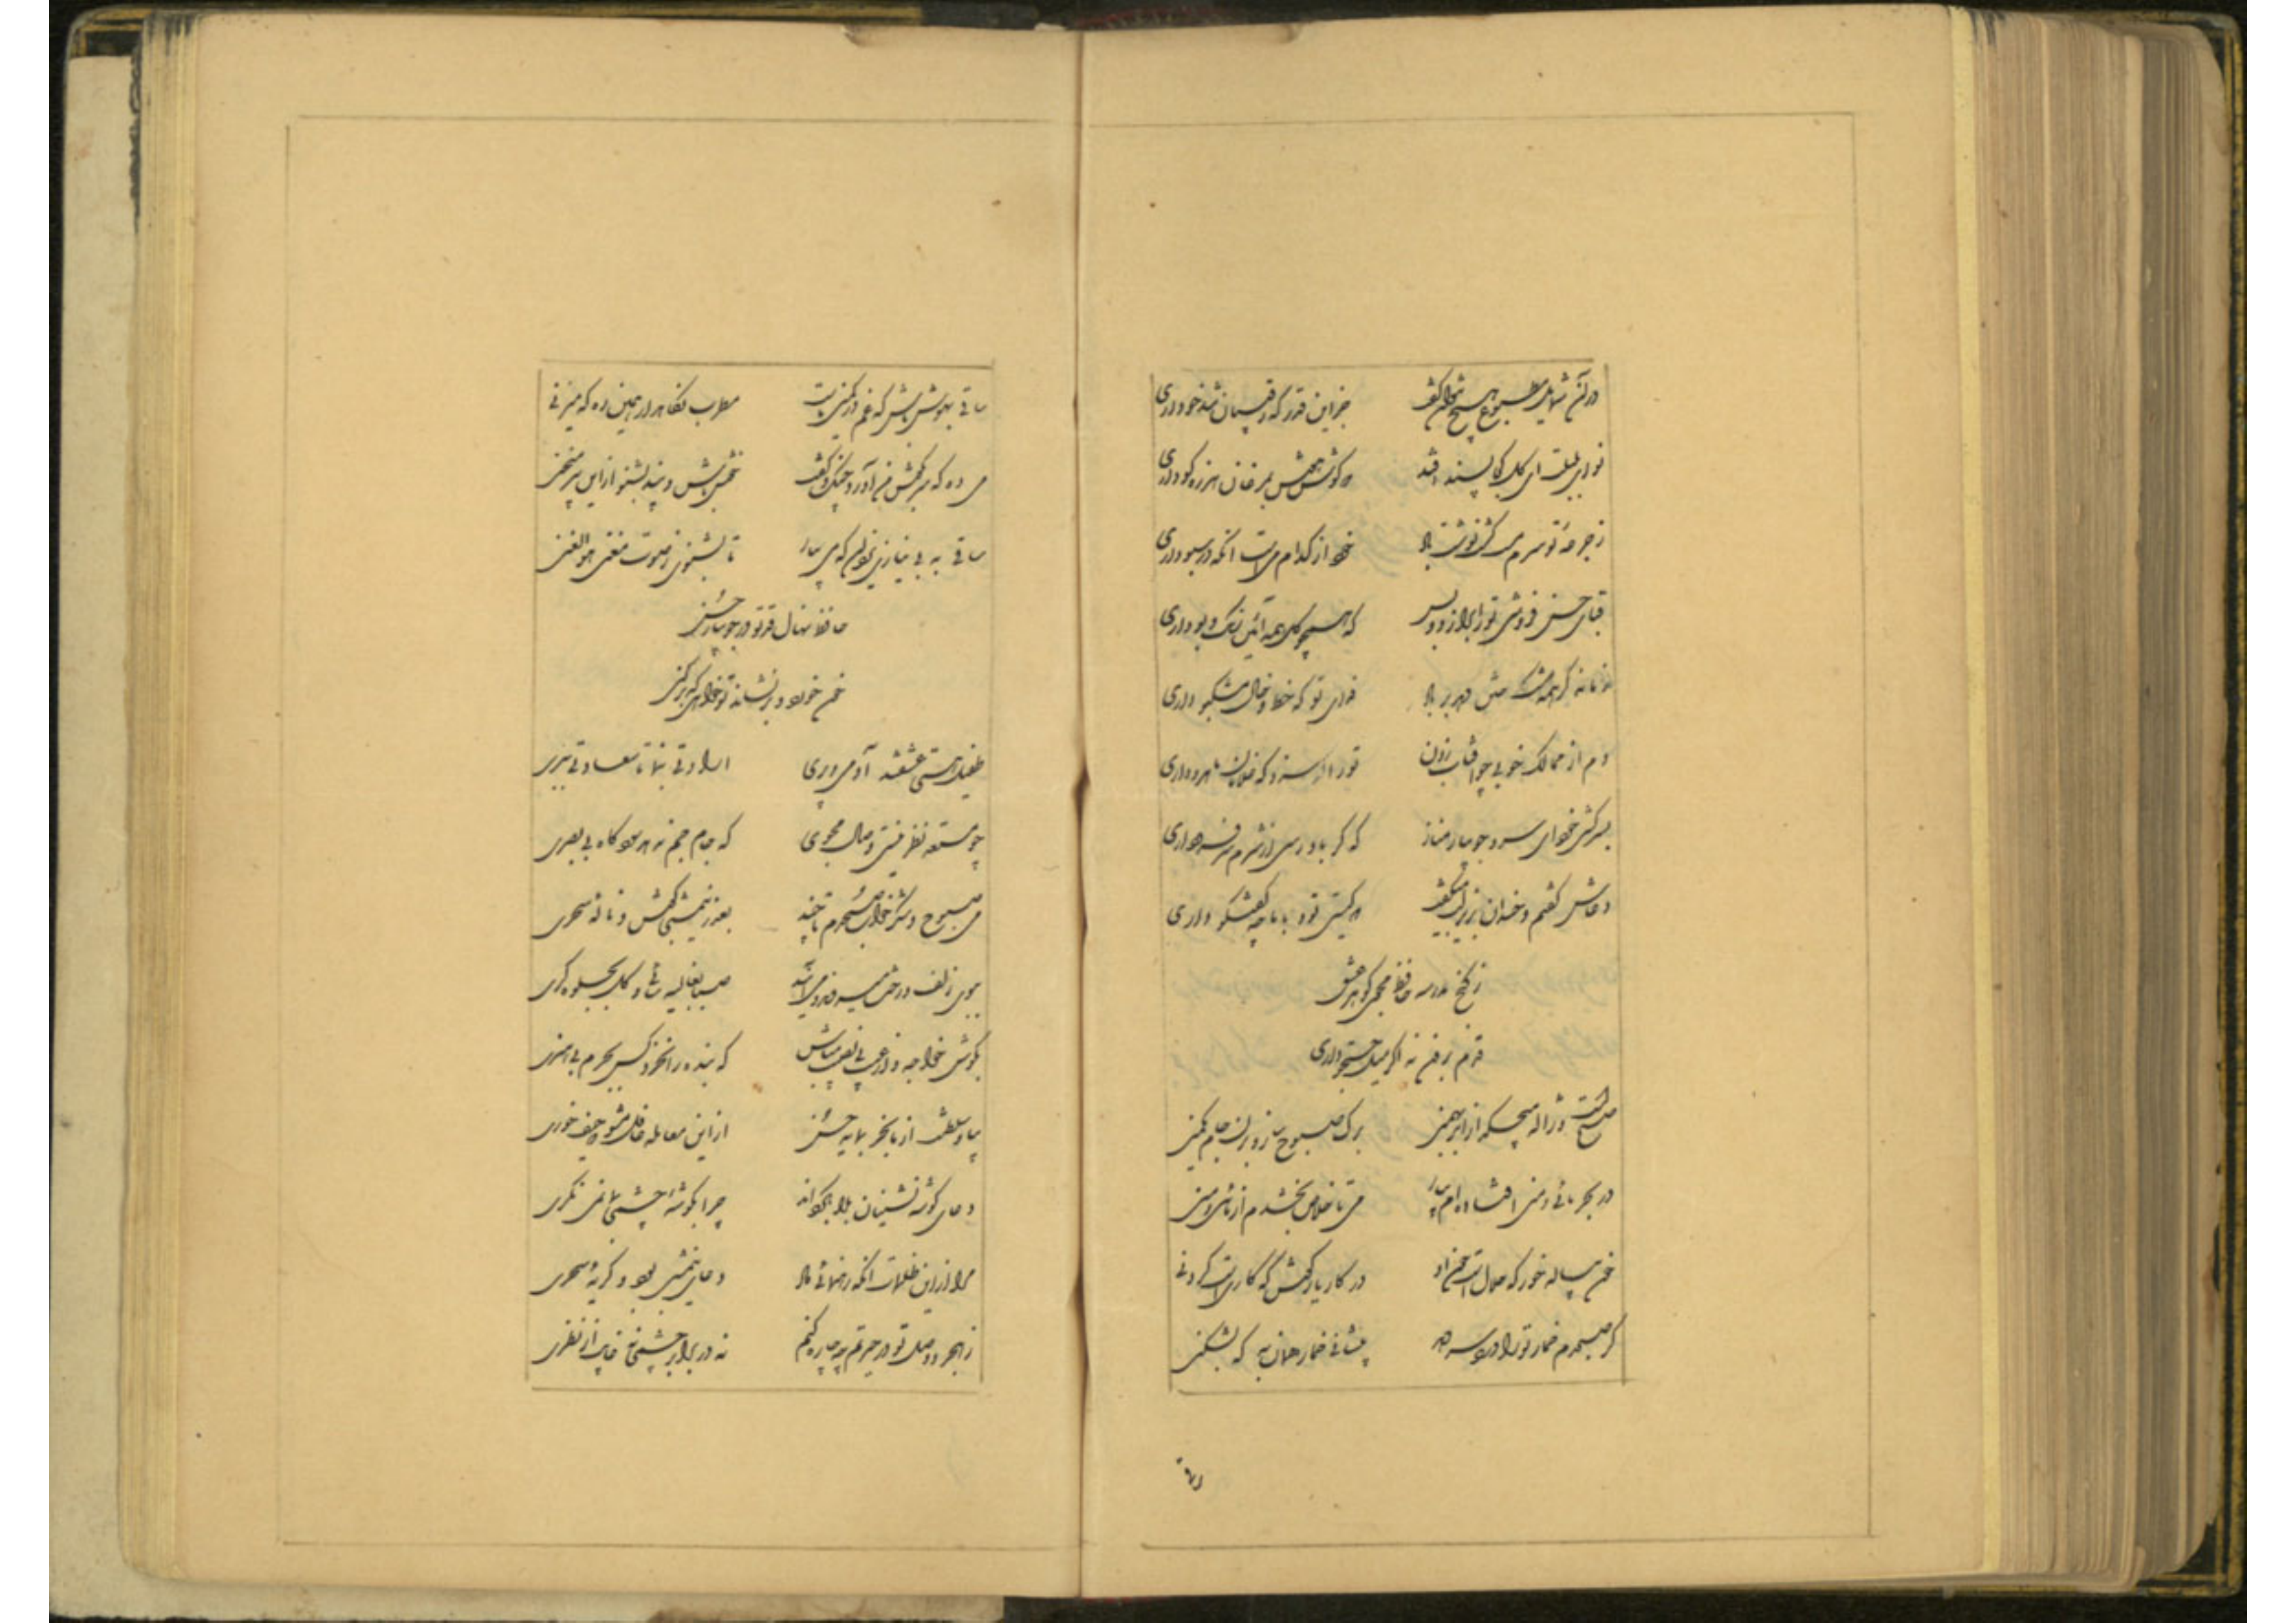 در آن شمایل مطبوع هیچ نتوان گفت جز این قدر که رقیبان تندخو داری
نوای بلبلت ای گل کجا پسند افتد که گوش هوش بمرغان هرزه گو داری
ز جرعه تو سرم مست گشت نوشت باد خود از کدام می است آنکه در سبو داری
قبای حسن فروشی تو را برازد و بس که همچو گل همه آئین رنگ و بو داری
گر همه مشک ختن دهد بر باد فدای تو که خط و خال مشکبو داری
دم از ممالک خوبی چو آفتاب زدن تو را رسد که غلامان ماهرو داری
بسرکشی خود ای سرو جویبار مناز که گر باو رسی از شرم سر فرو داری
دعاش گفتم و خندان بزیر لب گفت که کیستی تو و با ما چه گفتگو داری
ز کنج مدرسه حافظ مجوی گوهر عشق
قدم برون نه اگر میل جستجو داری
صبح است و ژاله میچکد از ابر بهمنی برگ صبوح ساز و بزن جام یکمنی
در بحر مائی و منی افتاده ام بیار می تا خلاص بخشدم از مائی و منی
خون پیاله خور که حلال است خون او در کار یار کوش که کاریست کردنی
گر صبحدم خمار تو را درد سر دهد پیشانی خمار همان به که بشکنی
ساقی بهوش باش که غم در کمین ماست مطرب نگاه دار همین ره که میزنی
می ده که سر بگوش من آورد چنگ و گفت خوش باش و پند بشنو از این پیر منحنی
ساقی به بی نیازی یزدان که می بیار تا بشنوی ز صوت مغنی هو الغنی
حافظ نهال قد تو در جویبار حسن
خون خورد و برنشاند تو خواهی که برکنی
طفیل هستی عشقند آدمی و پری ارادتی بنما تا سعادتی ببری
چو مستعد نظر نیستی وصال مجوی که جام جم ندهد سود گاه بی بصری
می صبوح و شکرخواب صبحدم تا چند بعذر نیمشبی کوش و ناله سحری
ببوی زلف و رخت میروند و میآیند صبا بغالیه سائی و گل بجلوه گری
بکوش خواجه و از عشق بی نصیب مباش که بنده را نخرد کس بجرم بی هنری
بیا و سلطنت از ما بخر بمایه حسن از این معامله غافل مشو که حیف خوری
دعای گوشه نشینان بلا بگرداند چرا بگوشه چشمی بما نمی نگری
مرا از این ظلمات آنکه رهنمائی داد دعای نیمشبی بود و گریه سحری
ز هجر و وصل تو در حیرتم چه چاره کنم نه در برابر چشمی نه غایب از نظری